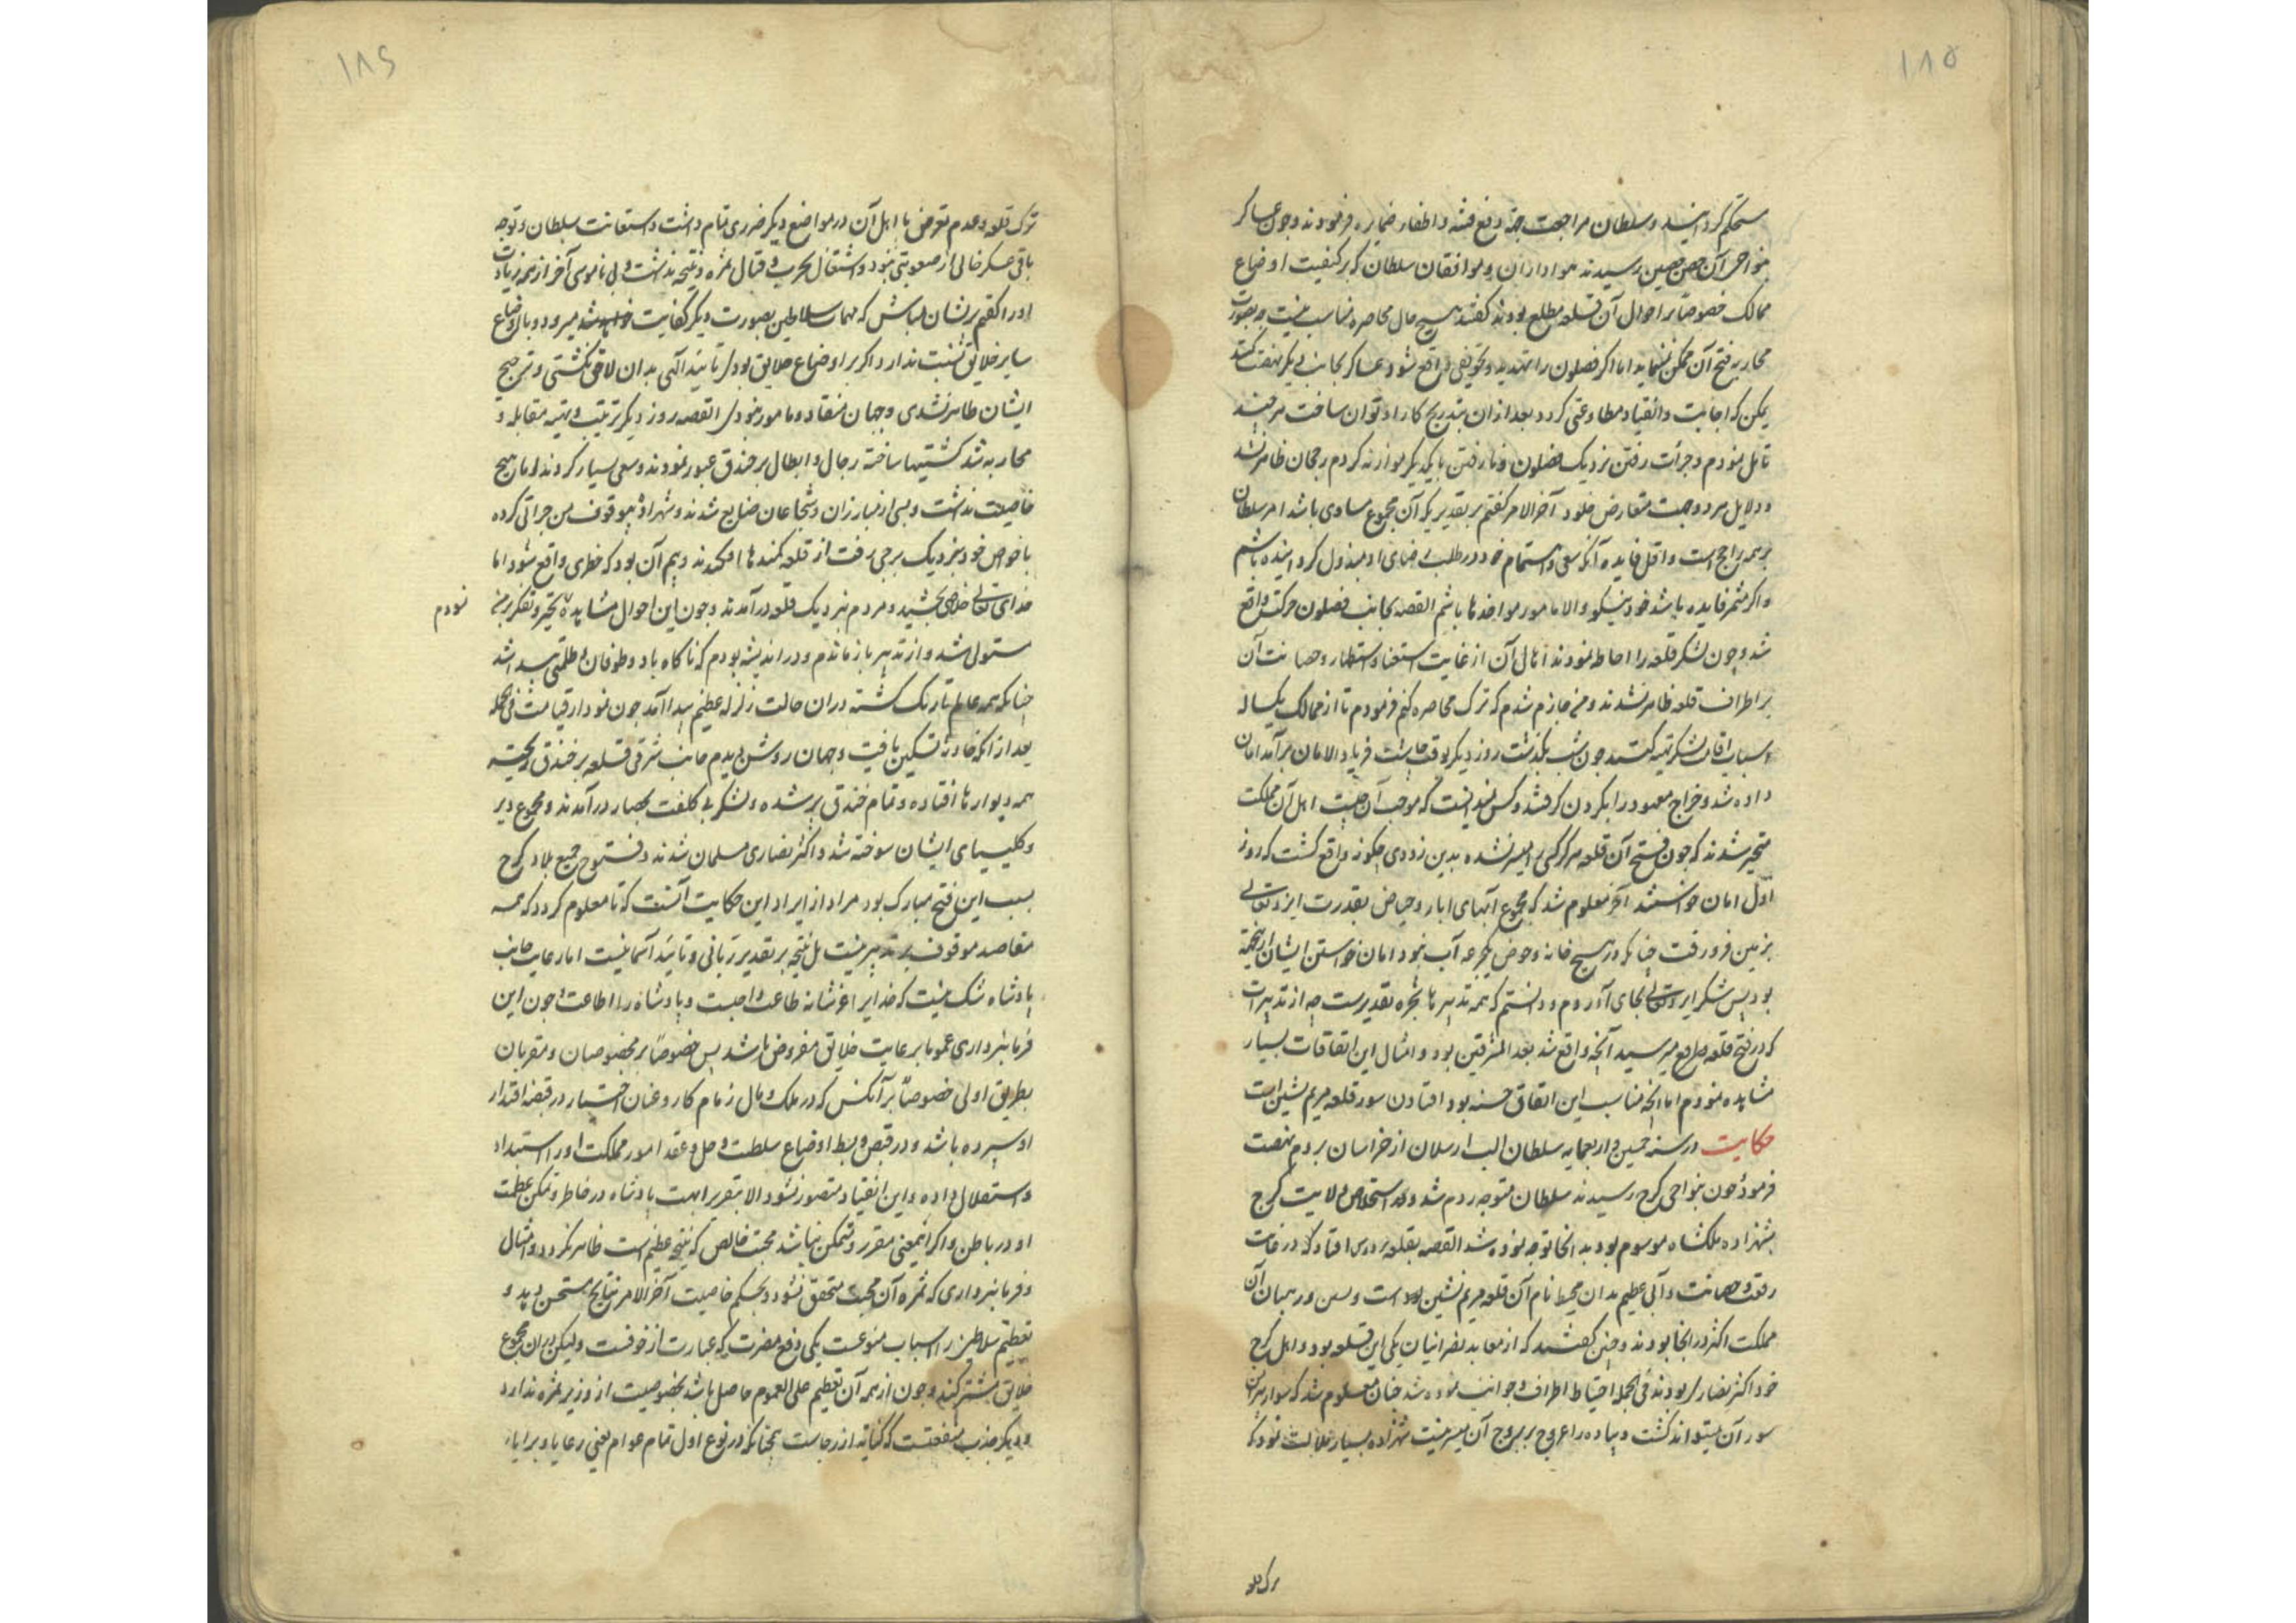 ۱۸۵
مستحکم گردانید و سلطان مراجعت جهة دفع فتنه و اطفار ضمایره فرمودند و چون عساکر
بنواحی آن حصن حصین رسیدند هواداران و موافقان سلطان که بر کیفیت اوضاع
ممالک خصوصا بر احوال آن قلعه مطلع بودند گفتند هیچ حال محاصره مناسب نیست و بصورت
محاربه فتح آن ممکن ننماید اما اگر فضلون را تهدید و تخویفی واقع شود و عساکر بجانب دیگر نهضت کند
یمکن که اجابت و انقیاد و مطاوعتی کرد و بعد از ان بتدریج کار او توان ساخت هر چند
تامل نمودم و جرأت رفتن نزدیک فضلون و نارفتن با یکدیگر موازنه کردم رجحان ظاهر نشد
و دلایل هر دو جهت متعارض نمود آخر الامر گفتم بر تقدیر یکه آن مجموع مساوی باشد امر سلطان
بر همه راجح است و اقل فایده آنکه سعی و اهتمام خود در طلب رضای او مبذول گردانیده باشم
و اگر مثمر فایده باشد خود نیکو و الا مامور مواخذ نباشم القصه بجانب فضلون حرکت واقع
شد و چون لشکر قلعه را احاطه نمودند اهالی آن از غایت استغنا و استظهار و حصانت آن
بر اطراف قلعه ظاهر نشدند و من جازم شدم که ترک محاصره کنم فرمودم تا از ممالک یکساله
اسباب اقامت لشکر تهیه کنند چون شب بگذشت روز دیگر بوقت چاشت فریاد الامان برآمد امان
داده شد و خراج معهود را بگردن گرفتند و کس ندانست که موجب آن چیست اهل آن مملکت
متحیر شدند که چون فتح آن قلعه هرگز کسی را میسر نشده بدین زودی چگونه واقع گشت که روز
اول امان خواستند آخر معلوم شد که مجموع آبهای ابار و حیاض بقدرت ایزد تعالی
بزمین فرو رفت چنانکه در هیچ خانه و حوض یکجرعه آب نبود امان خواستن ایشان از این جهة
بود پس شکر ایزد تعالی بجای آوردم و دانستم که همه تدبیرها شجره تقدیرست چه از تدبیرات
که در فتح قلعه بخاطر میرسید آنچه واقع شد بعد المشرقین بود و امثال این اتفاقات بسیار
مشاهده نمودم اما آنچه مناسب این اتفاق حسنه بود افتادن سور قلعه مریم نشین است
حکایت در سنه خمسین و اربعمایه سلطان الب ارسلان از خراسان بروم نهضت
فرمود چون بنواحی کرج رسیدند سلطان متوجه روم شد و استخلاص ولایت کرج
بشهزاده ملکشاه موسوم بود بدانجا توجه نموده شد القصه بقلعه بردس افتاد که در غایت
رفعت و حصانت و آبی عظیم بدان محیط نام آن قلعه مریم نشین است و قسیس و رهبان آن
مملکت اکثر در انجا بودند و چنین گفتند که از معابد نصرانیان یکی این قلعه بود و اهل کرج
خود اکثر نصاری بودند فی الجمله احتیاط اطراف و جوانب نموده شد چنان معلوم شد که سوار پیرامن
سور آن میتواند گشت و پیاده را عروج بر بروج آن میسر نیست شهزاده بسیار ملالت نمود که
ترک قلعه
۱۸۶
ترک قلعه و عدم تعرض با اهل آن در مواضع دیگر ضرری تمام داشت و استعانت سلطان و توجه
باقی عسکر خالی از صعوبتی نبود و اشتغال بحرب و قتال ثمره و نتیجه نداشت و بی ناموسی آخر از همه زیادت
او را گفتم پریشان مباش که مهمات سلاطین بصورت دیگر کفایت میرود و با اوضاع
سایر خلایق نسبت ندارد اگر بر اوضاع خلایق بودی تایید آلهی بدان لاحق نگشتی و ترجیح
ایشان ظاهر نشدی و جهان منقاد و مامور نبودی القصه روز دیگر ترتیب و تهیه مقابله و
محاربه شد کشتیها ساخته رجال و ابطال بر خندق عبور نمودند و سعی بسیار کردند اما هیچ
خاصیت نداشت و بسی از مبارزان و شجاعان ضایع شدند و شهزاده بیوقوف من جراتی کرده
با خواص خود بنزدیک برجی رفت از قلعه کمندها افکندند و بیم آن بود که خطری واقع شود اما
خدای تعالی خلاصی بخشید و مردم بنزدیک قلعه درآمدند و چون این احوال مشاهده تحیر و تفکر بر من
نمودم
مستولی شد و از تدبیر بازماندم و در اندیشه بودم که ناگاه باد و طوفان و ظلمتی پیدا شد
چنانکه همه عالم تاریک گشته در ان حالت زلزله عظیم پیدا آمد چون نمودار قیامت فی الجمله
بعد از انکه حادثه تسکین یافت و جهان روشن دیدم جانب شرقی قلعه بر خندق ریخته
همه دیوارها افتاده و تمام خندق پر شده و لشکر بی کلفت بحصار درآمدند و مجموع دیر
و کلیسیای ایشان سوخته شد و اکثر نصاری مسلمان شدند و فتوح جمیع بلاد کرج
بسبب این فتح مبارک بود مراد از ایراد این حکایت آنست که تا معلوم گردد که همه
مقاصد موقوف بر تدبیر نیست بل نتیجه بر تقدیر ربانی و تایید آسمانیست اما رعایت جانب
پادشاه شک نیست که خدایرا عز شانه طاعت واجبست و پادشاه را اطاعت و چون این
فرمانبرداری عموما بر رعایت خلایق مفروض باشد پس خصوصا بر مخصوصان و مقربان
بطریق اولی خصوصا بر آنکس که در ملک و مال زمام کار و عنان اختیار در قبضه اقتدار
او سپرده باشد و در قبض و بسط اوضاع سلطنت و حل و عقد امور مملکت او را استبداد
و استقلال داده و این انقیاد متصور نشود الا بتقریر ابهت پادشاه در خاطر و تمکن عظمت
او در باطن و اگر اینمعنی مقرر و متمکن نباشد محبت خالص که نتیجه عظیم است ظاهر نگردد و امتثال
و فرمانبرداری که ثمره آن محبت متحقق نشود و بحکم خاصیت آخر الامر نتایج مستحسن دهد و
تعظیم سلاطین را اسباب متنوعست یکی دفع مضرت که عبارت از خوفست ولیکن در ان مجموع
خلایق مشترکند و چون از همه آن تعظیم علی العموم حاصل باشد بخصوصیت از وزیر ثمره ندارد
و دیگر جذب منفعتست که کنایه از رجاست همچنانکه در نوع اول تمام عوام یعنی رعایا و برایا